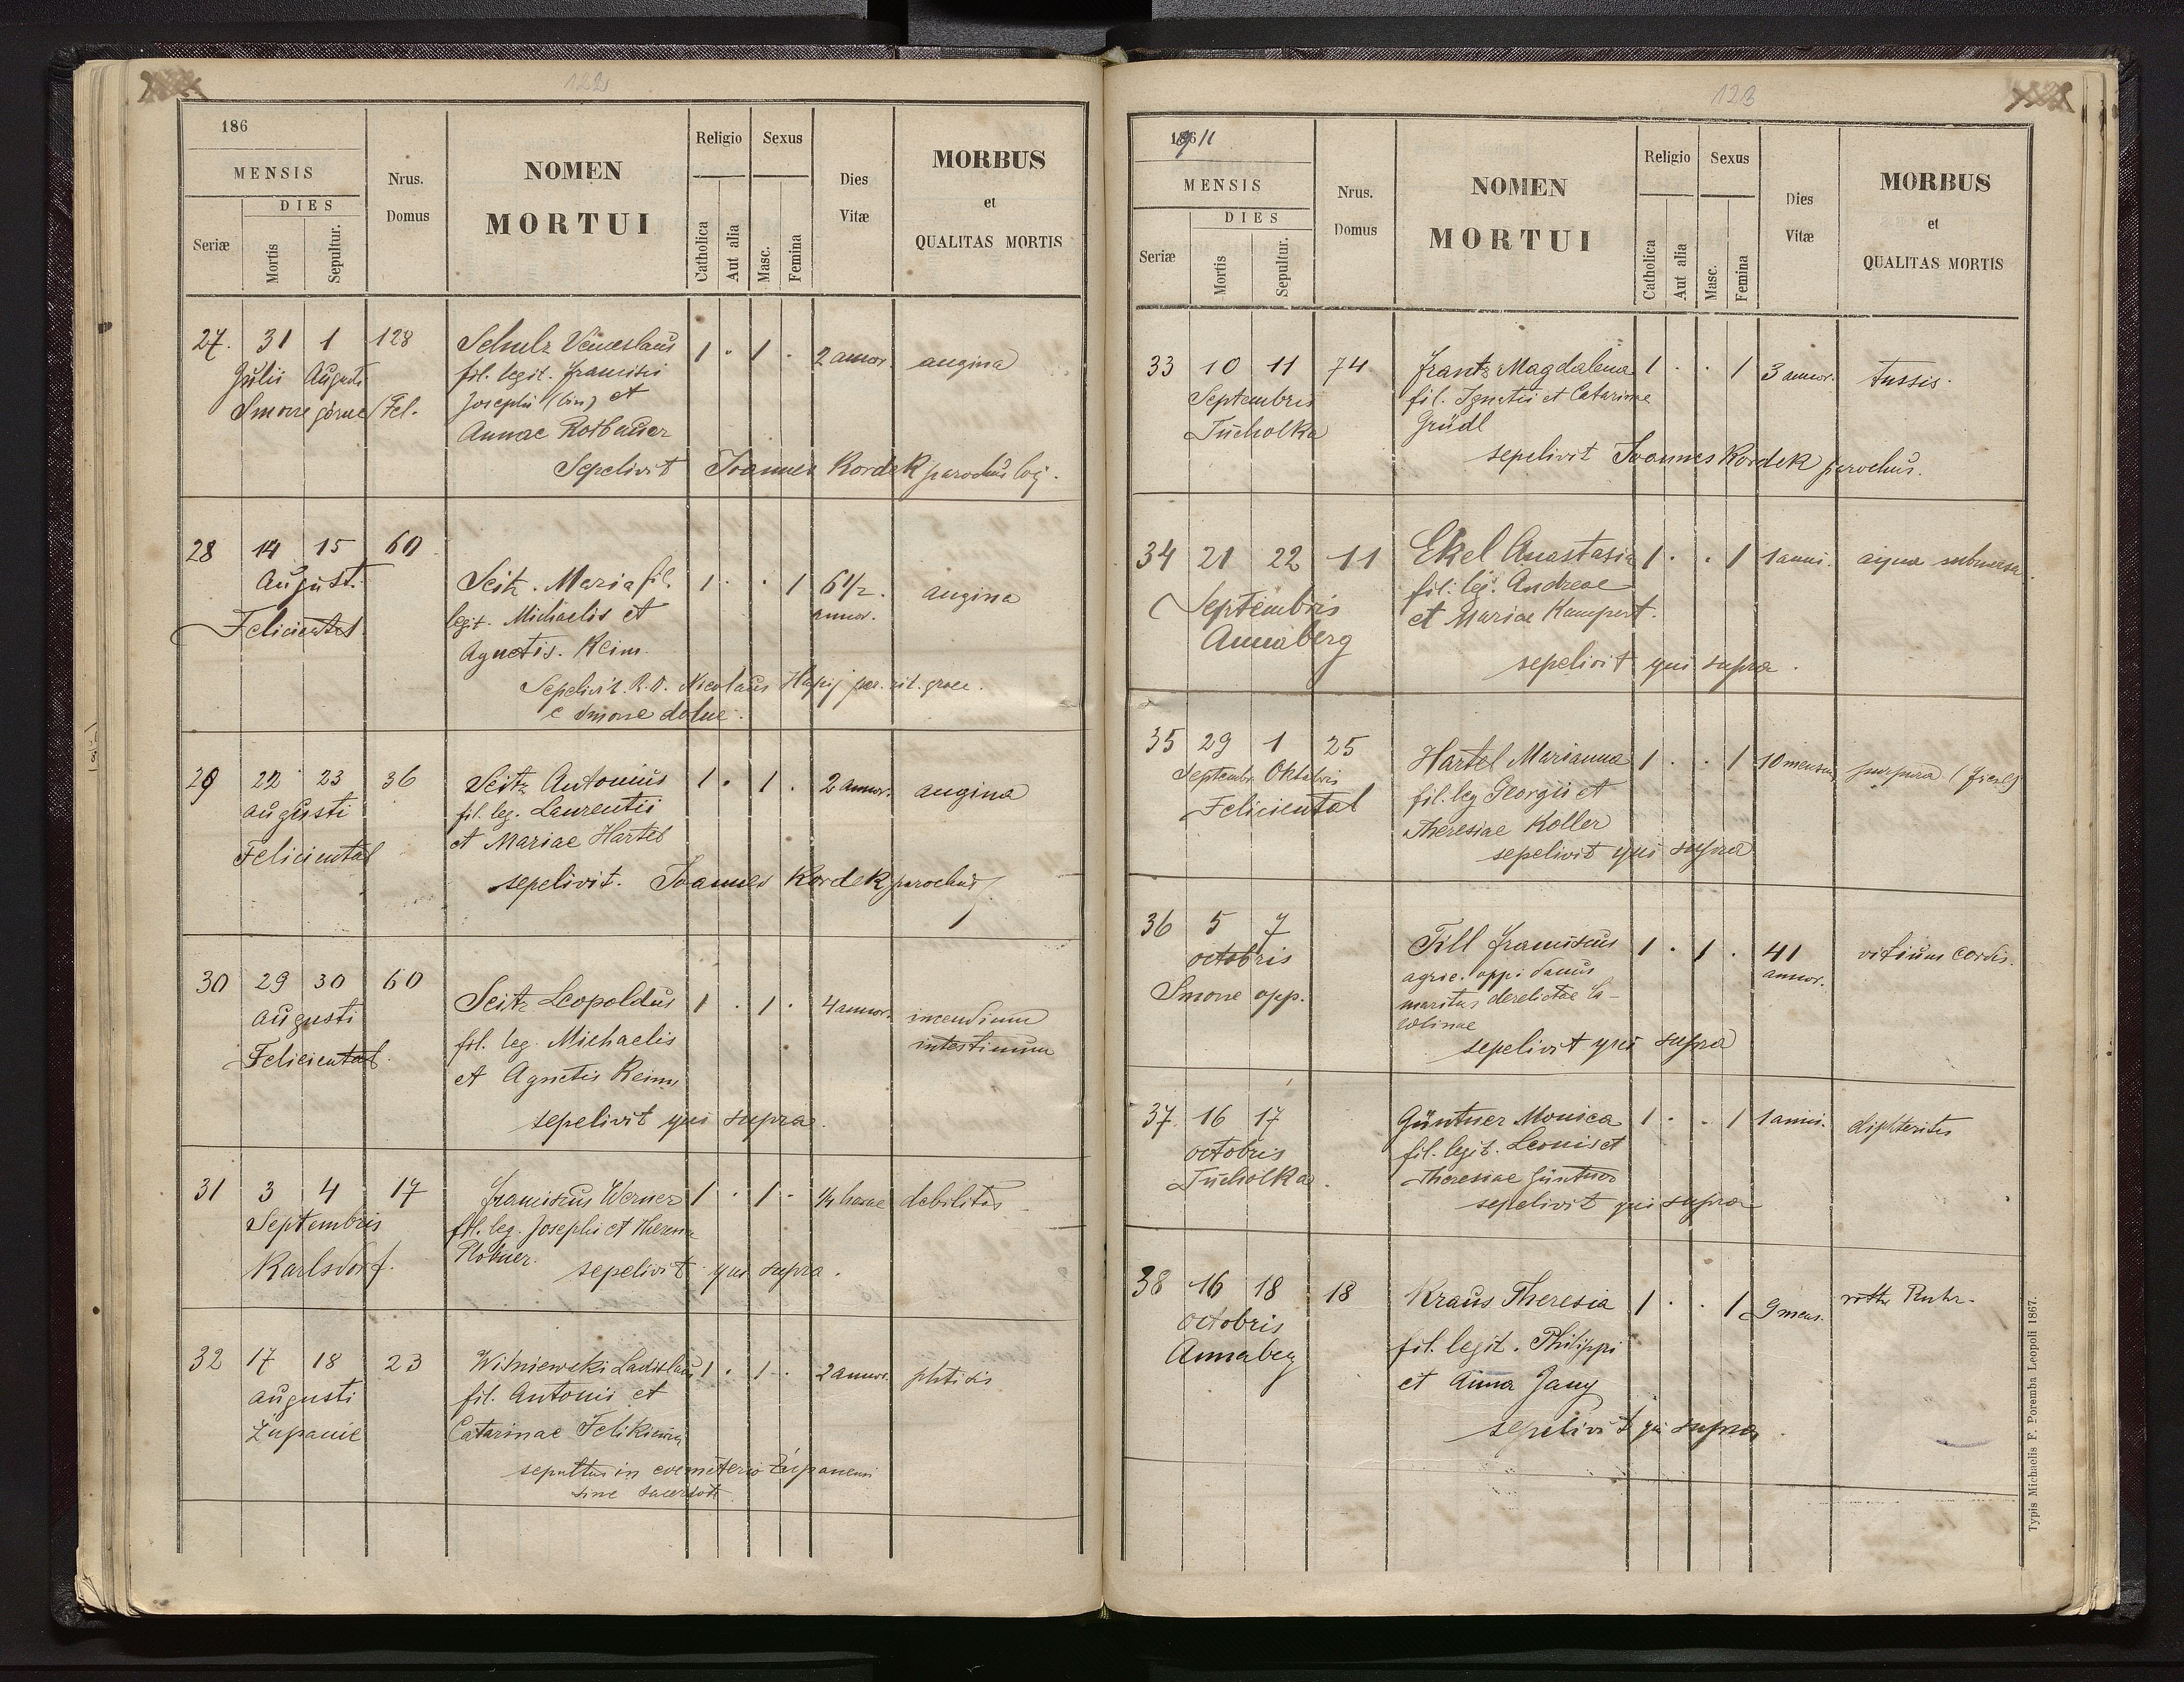 122
186
MENSIS
DIES
Seriæ
Mortis
Sepultur.
Nrus.
Domus
NOMEN
MORTUI
Religio
Catholica
Aut alia
Sexus
Masc.
Femina
Dies
Vitæ
MORBUS
et
QUALITAS MORTIS
27. 31 1 128 Schulz Venceslaus 1 . 1 . 2 annor. angina
Julii Augusti fil. legit. Francisci
Smorze górne (Fel. Josephi (bin) et
Annae Rotbauer
Sepelivit Joannes Kordek parochus loci.
28 14 15 60
August. Seitz Maria fil. 1 . . 1 6 1/2 angina
Feliciental legit. Michaelis et annor.
Agnetis Reim.
Sepelivit R. D. Nicolaus par. rit. graec.
e Smorze dolne.
29 22 23 36 Seitz Antonius 1 . 1 . 2 annor. angina
Augusti fil. leg. Laurentii
Feliciental et Mariae Hartel
sepelivit. Joannes Kordek parochus
30 29 30 60 Seitz Leopoldus 1 . 1 . 4 annor. incendium
Augusti fil. leg. Michaelis intestinum
Feliciental. et Agnetis Reim
sepelivit qui supra.
31 3 4 17 Franciscus Werner 1 . 1 . 1/2 horae debilitas
Septembris fil. leg. Josephi et Theresia
Karlsdorf.
sepelivit qui supra.
32 17 18 23 Wiśniewski Ladislaus 1 . 1 . 2 annor. phtisis
Augusti fil. Antonii et
Żupanie Catarinae
sepultus in coemeterio Żupaneni
sine sacerdote
123
186 911
MENSIS
DIES
Seriæ
Mortis
Sepultur.
Nrus.
Domus
NOMEN
MORTUI
Religio
Catholica
Aut alia
Sexus
Masc.
Femina
Dies
Vitæ
MORBUS
et
QUALITAS MORTIS
33 10 11 74 Frantz Magdalena 1 . . 1 3 annor. tussis.
Septembris fil. Ignatii et Catarinae
Tucholka Gründl
sepelivit Joannes Kordek parochus.
34 21 22 11 Ekel Anastasia 1 . . 1 1 anni. aqua submersa.
Septembris fil. leg. Andreae
Annaberg et Mariae Kampert.
sepelivit qui supra.
35 29 1 25 Hartel Marianna 1 . . 1 10 mensium purpura
Septembr. Oktobris fil. leg Georgii et
Feliciental Theresiae Koller
sepelivit qui supra
36 5 7 Till Franciscus 1 . 1 . 41 vitium cordis.
octobris agric. oppidanus annor.
Smorze opp. maritus derelictae Ca-
rolinae
sepelivit qui supra
37 16 17 Güntner Monica 1 . . 1 1 anni. diphteritis
octobris fil. legit. Leonis et
Tucholka. Theresiae Güntner
sepelivit qui supra
38 16 18 18 Kraus Theresia 1 . . 1 9 mens. rothe Ruhr.
octobris fil. legit. Philippi
Annabeg et Anna Jany
sepelivit qui supra.
Typis Michaelis F. Poremba Leopoli 1867.